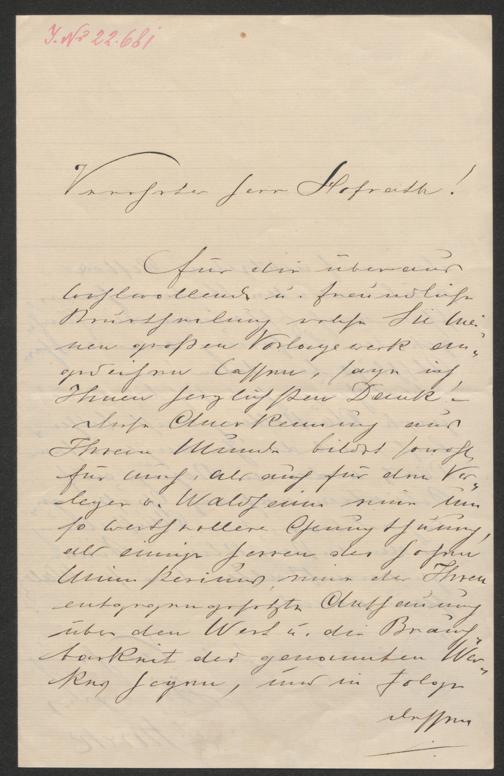 J. No 22.681
Verehrter Herr Hofrath!
Für die überaus
wohlwollende u. freundliche
Beurtheilung welche Sie mei
nen großen Vorlagewerk an„
gedeihen lassen, sage ich
Ihnen herzlichsten Dank! –
diese Anerkennung aus
Ihrem Munde bildet sowohl
für mich, als auch für den Ver„
leger v. Waldheim eine um
so werthvollere Genugthuung,
als einige Herren des hohen
Ministeriums, eine der Ihren
entgegengesetzte Anschauung
über den Wert u. die Brauch„
barkeit des genannten Wer„
kes hegen, und in Folge
dessen